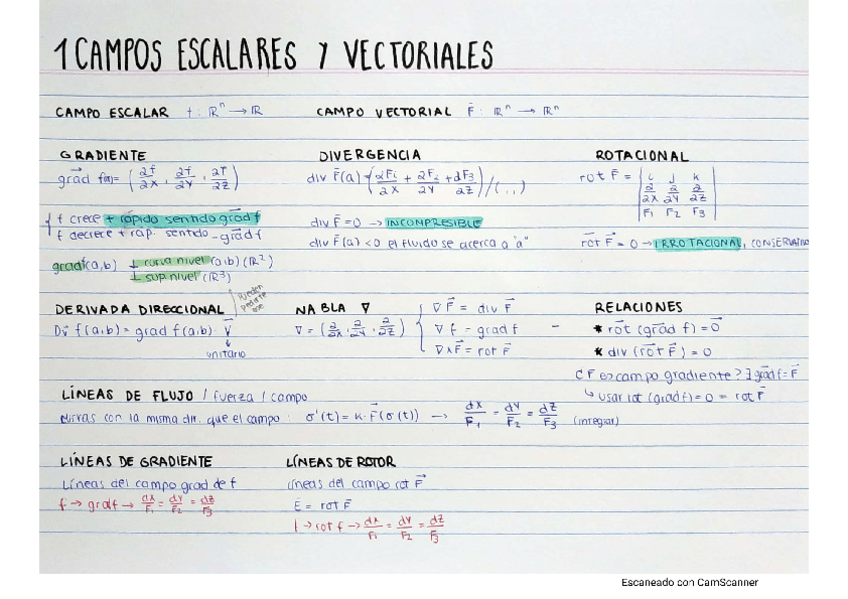 1 CAMPOS ESCALARES Y VECTORIALES
CAMPO ESCALAR f: ℝⁿ → ℝ
CAMPO VECTORIAL F̄: ℝⁿ → ℝⁿ
GRADIENTE
grad f(a) = (∂f/∂x, ∂f/∂y, ∂f/∂z)
{ f crece + rápido sentido grad f
f decrece + ráp. sentido -grad f
gradf(a,b) ⊥ curva nivel (a,b) (ℝ²)
⊥ sup nivel (ℝ³)
pueden pedirte
DIVERGENCIA
div F̄(a) = (∂F₁/∂x + ∂F₂/∂y + ∂F₃/∂z)/(...)
div F̄ = 0 → INCOMPRESIBLE
div F̄(a) < 0 el fluido se acerca a "a"
ROTACIONAL
rot F̄ = | i j k |
| ∂/∂x ∂/∂y ∂/∂z |
| F₁ F₂ F₃ |
rot F̄ = 0 → IRROTACIONAL, CONSERVATIVO
DERIVADA DIRECCIONAL
Dv̄ f(a,b) = grad f(a,b) · v̄
↓
unitario
NABLA ∇
∇ = (∂/∂x, ∂/∂y, ∂/∂z)
{ ∇F̄ = div F̄
∇f = grad f
∇xF̄ = rot F̄
RELACIONES
* rot (grad f) = 0̄
* div (rot F̄) = 0
¿F es campo gradiente? ∃ grad f = F̄
↳ usar rot (grad f) = 0 = rot F̄
LÍNEAS DE FLUJO / fuerza / campo
curvas con la misma dir. que el campo: σ'(t) = k·F̄(σ(t)) → dx/F₁ = dy/F₂ = dz/F₃ (integrar)
LÍNEAS DE GRADIENTE
Líneas del campo grad de f
f → gradf → dx/F₁ = dy/F₂ = dz/F₃
LÍNEAS DE ROTOR
líneas del campo rot F̄
E = rot F̄
→ rot f → dx/F₁ = dy/F₂ = dz/F₃
Escaneado con CamScanner